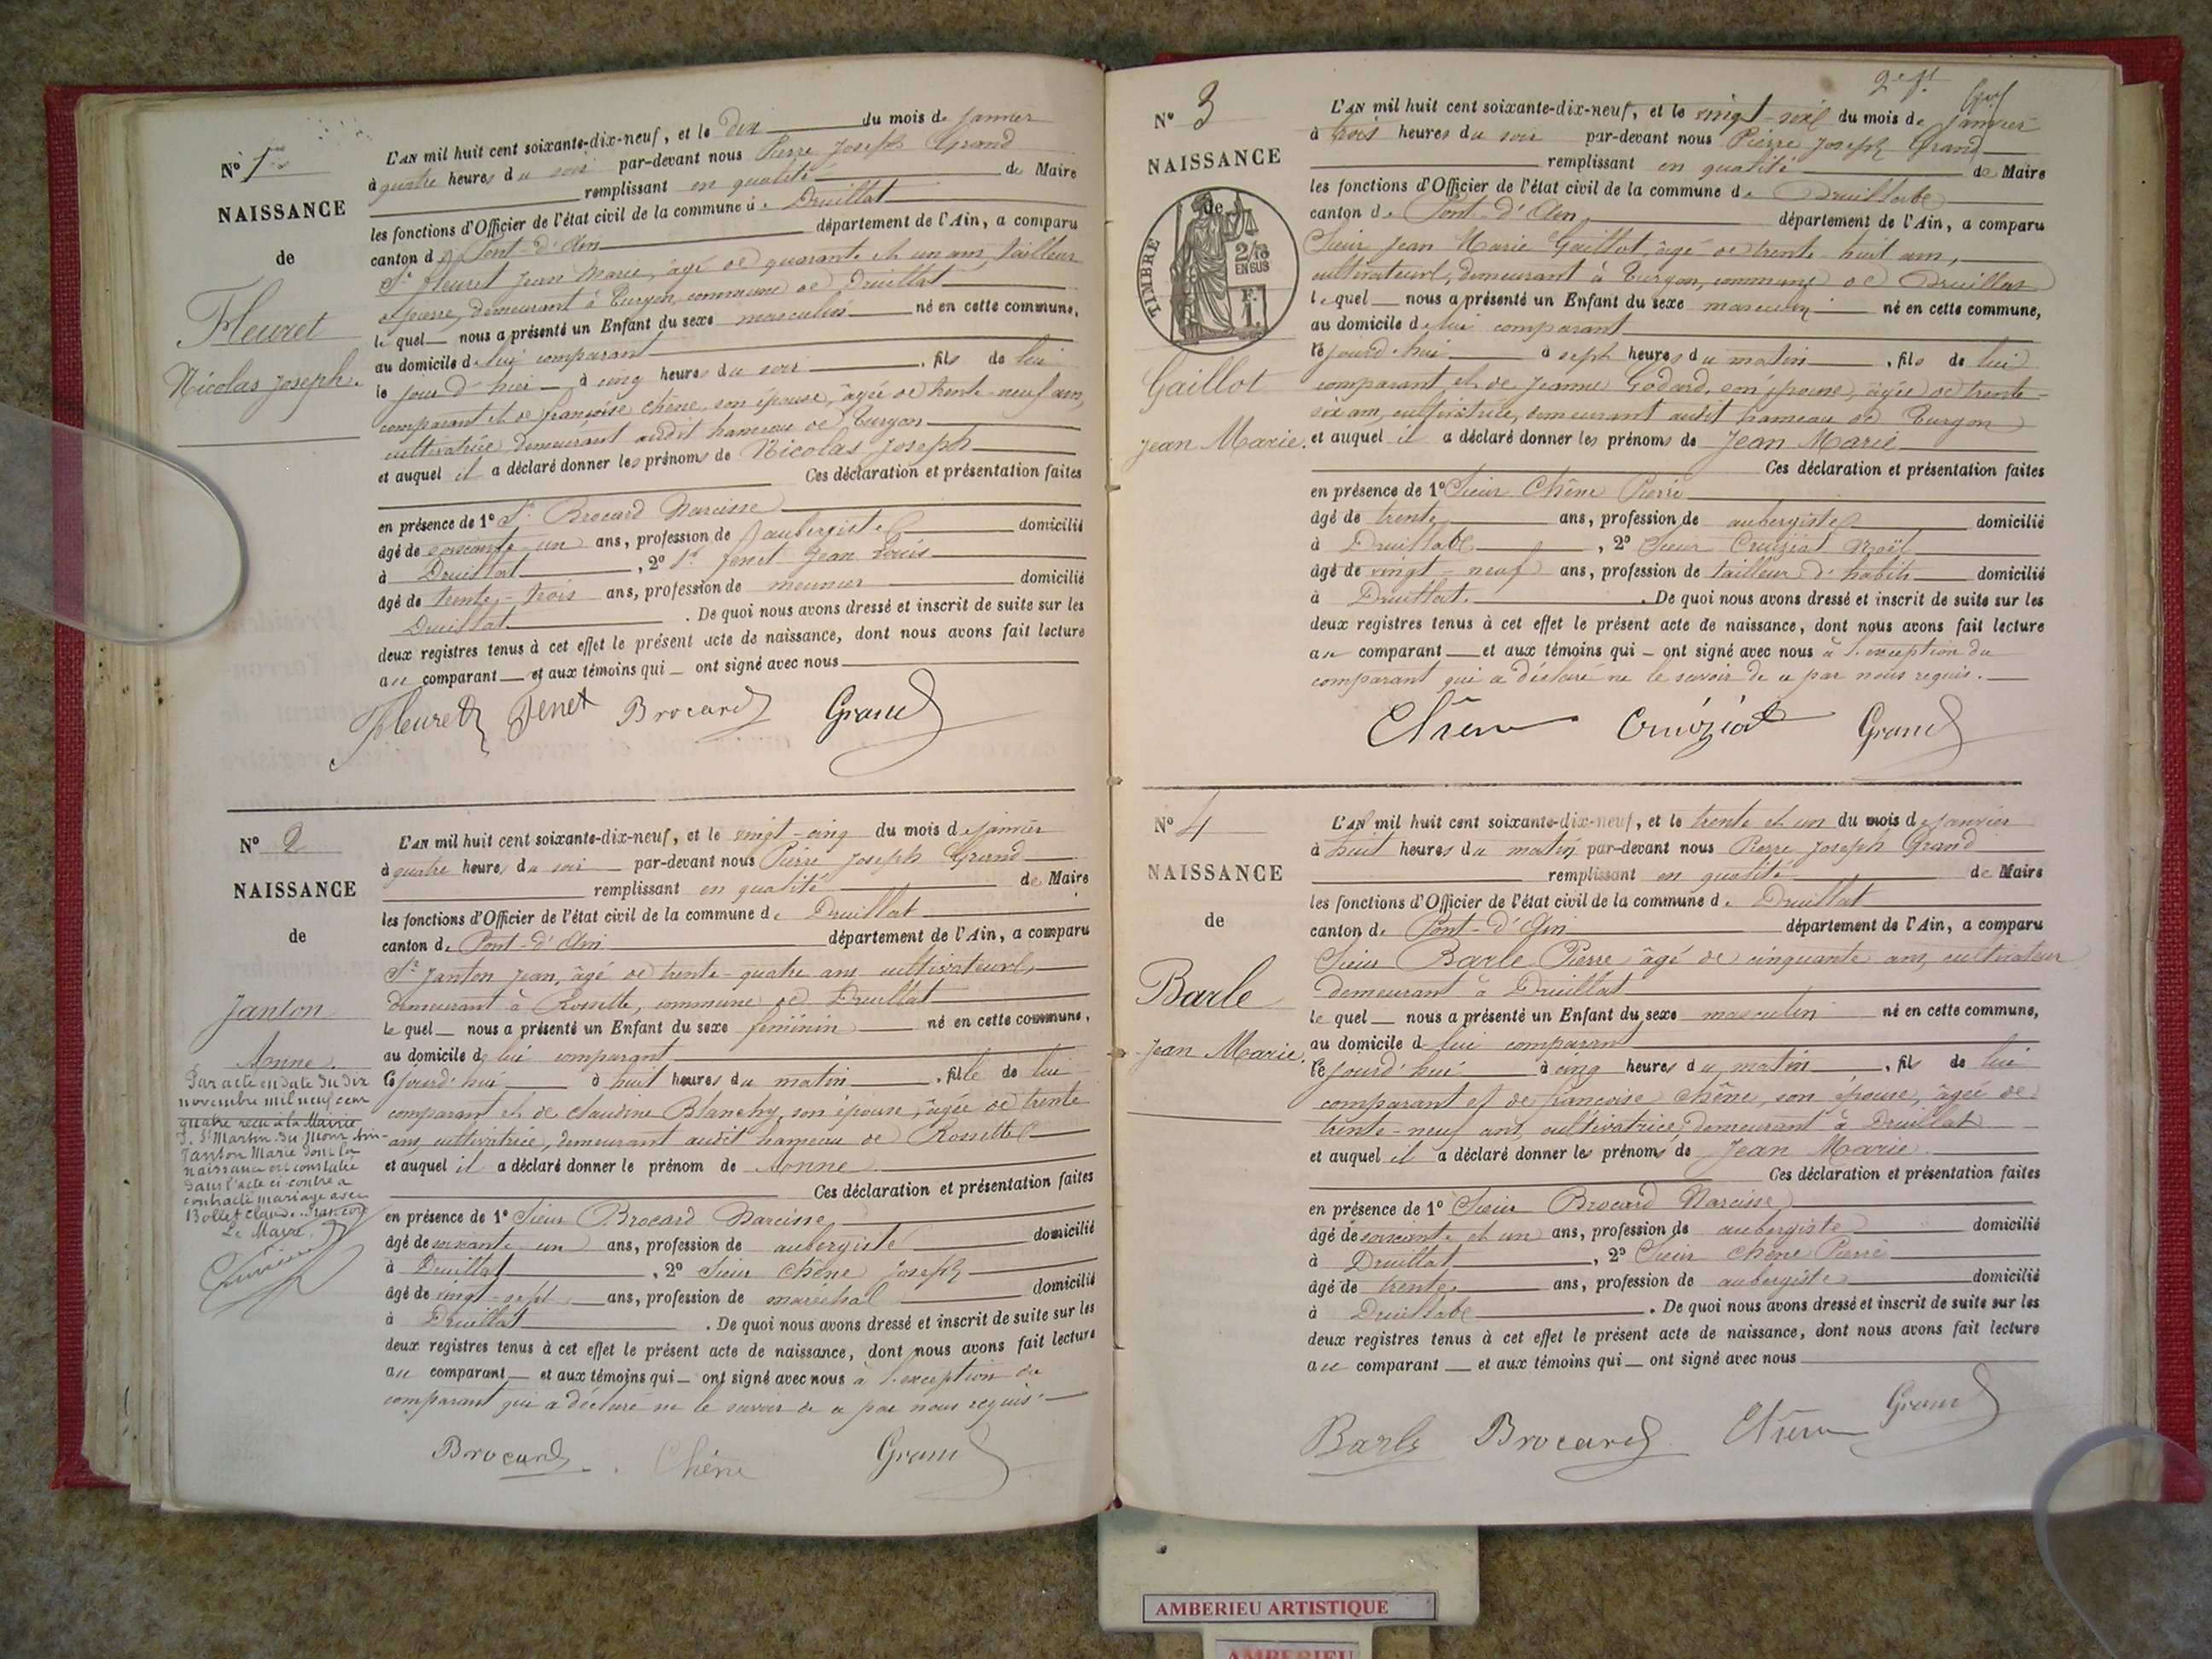 N° 1er
NAISSANCE
de
Fleuret
Nicolas Joseph.
L'AN mil huit cent soixante-dix-neuf, et le dix du mois de janvier
à quatre heures du soir par-devant nous Pierre Joseph Grand
remplissant en qualité de Maire
les fonctions d'Officier de l'état civil de la commune de Druillat
canton de Pont-d'Ain département de l'Ain, a comparu
Sr Fleuret Jean Marie, âgé de quarante et un ans, tailleur
de pierre, demeurant à Turgon, commune de Druillat
lequel nous a présenté un Enfant du sexe masculin né en cette commune,
au domicile de lui comparant
le jour d'hier à cinq heures du soir, fils de lui
comparant et de françoise Chêne, son épouse, âgée de trente-neuf ans,
cultivatrice, demeurant audit hameau de Turgon
et auquel il a déclaré donner les prénoms de Nicolas Joseph
Ces déclaration et présentation faites
en présence de 1° Sr Brocard Narcisse
âgé de soixante-un ans, profession de aubergiste domicilié
à Druillat, 2° Sr Jenet Jean Louis
âgé de trente-trois ans, profession de meunier domicilié
Druillat. De quoi nous avons dressé et inscrit de suite sur les
deux registres tenus à cet effet le présent acte de naissance, dont nous avons fait lecture
au comparant et aux témoins qui ont signé avec nous
Fleuret Jenet Brocard Grand
N° 2
NAISSANCE
de
Janton
Anne.
Par acte en date du dix
novembre mil neuf cent
quatre reçu à la Mairie
de St Martin du Mont
Janton Marie dont la
naissance est constatée
dans l'acte ci-contre a
contracté mariage avec
Bollet Claude François
Le Maire
L'AN mil huit cent soixante-dix-neuf, et le vingt-cinq du mois de janvier
à quatre heures du soir par-devant nous Pierre Joseph Grand
remplissant en qualité de Maire
les fonctions d'Officier de l'état civil de la commune de Druillat
canton de Pont-d'Ain département de l'Ain, a comparu
Sr Janton Jean, âgé de trente-quatre ans cultivateur,
demeurant à Rossette, commune de Druillat
Lequel nous a présenté un Enfant du sexe féminin né en cette commune,
au domicile de lui comparant
Cejourd'hui à huit heures du matin, fille de lui
comparant et de Claudine Blanchy, son épouse, âgée de trente
ans, cultivatrice, demeurant audit hameau de Rossette
et auquel il a déclaré donner le prénom de Anne
Ces déclaration et présentation faites
en présence de 1° Sieur Brocard Narcisse
âgé de soixante-un ans, profession de aubergiste domicilié
à Druillat, 2° Sieur Chêne Joseph
âgé de vingt-sept ans, profession de maréchal domicilié
à Druillat. De quoi nous avons dressé et inscrit de suite sur les
deux registres tenus à cet effet le présent acte de naissance, dont nous avons fait lecture
au comparant et aux témoins qui ont signé avec nous à l'exception du
comparant qui a déclaré ne le savoir de ce par nous requis.
Brocard Chêne Grand
N° 3
NAISSANCE
de
TIMBRE
2/10
EN SUS
F.
1.
Gaillot
Jean Marie.
L'AN mil huit cent soixante-dix-neuf, et le vingt-six du mois de janvier
à trois heures du soir par-devant nous Pierre Joseph Grand
remplissant en qualité de Maire
les fonctions d'Officier de l'état civil de la commune de Druillat
canton de Pont-d'Ain, département de l'Ain, a comparu
Sieur Jean Marie Gaillot, âgé de trente-huit ans,
cultivateur, demeurant à Turgon, commune de Druillat
lequel nous a présenté un Enfant du sexe masculin né en cette commune,
au domicile de lui comparant
Cejourd'hui à sept heures du matin, fils de lui
comparant et de Jeanne Godard, son épouse, âgée de trente-
six ans, cultivatrice, demeurant audit hameau de Turgon
et auquel il a déclaré donner les prénoms de Jean Marie
Ces déclaration et présentation faites
en présence de 1° Sieur Chêne Pierre
âgé de trente ans, profession de aubergiste domicilié
à Druillat, 2° Sieur Cruiziat Noël
âgé de vingt-neuf ans, profession de tailleur d'habits domicilié
à Druillat. De quoi nous avons dressé et inscrit de suite sur les
deux registres tenus à cet effet le présent acte de naissance, dont nous avons fait lecture
au comparant et aux témoins qui ont signé avec nous à l'exception du
comparant qui a déclaré ne le savoir de ce par nous requis.
Chêne Cruiziat Grand
N° 4
NAISSANCE
de
Barle
Jean Marie.
L'AN mil huit cent soixante-dix-neuf, et le trente et un du mois de janvier
à huit heures du matin par-devant nous Pierre Joseph Grand
remplissant en qualité de Maire
les fonctions d'Officier de l'état civil de la commune de Druillat
canton de Pont-d'Ain département de l'Ain, a comparu
Sieur Barle Pierre âgé de cinquante ans, cultivateur
demeurant à Druillat
lequel nous a présenté un Enfant du sexe masculin né en cette commune,
au domicile de lui comparant
Cejourd'hui à cinq heures du matin, fils de lui
comparant et de françoise Chêne, son épouse, âgée de
trente-neuf ans, cultivatrice, demeurant à Druillat
et auquel il a déclaré donner les prénoms de Jean Marie
Ces déclaration et présentation faites
en présence de 1° Sieur Brocard Narcisse
âgé de soixante et un ans, profession de aubergiste domicilié
à Druillat, 2° Sieur Chêne Pierre
âgé de trente ans, profession de aubergiste domicilié
à Druillat. De quoi nous avons dressé et inscrit de suite sur les
deux registres tenus à cet effet le présent acte de naissance, dont nous avons fait lecture
au comparant et aux témoins qui ont signé avec nous
Barle Brocard Chêne Grand
AMBERIEU ARTISTIQUE
AMBERIEU